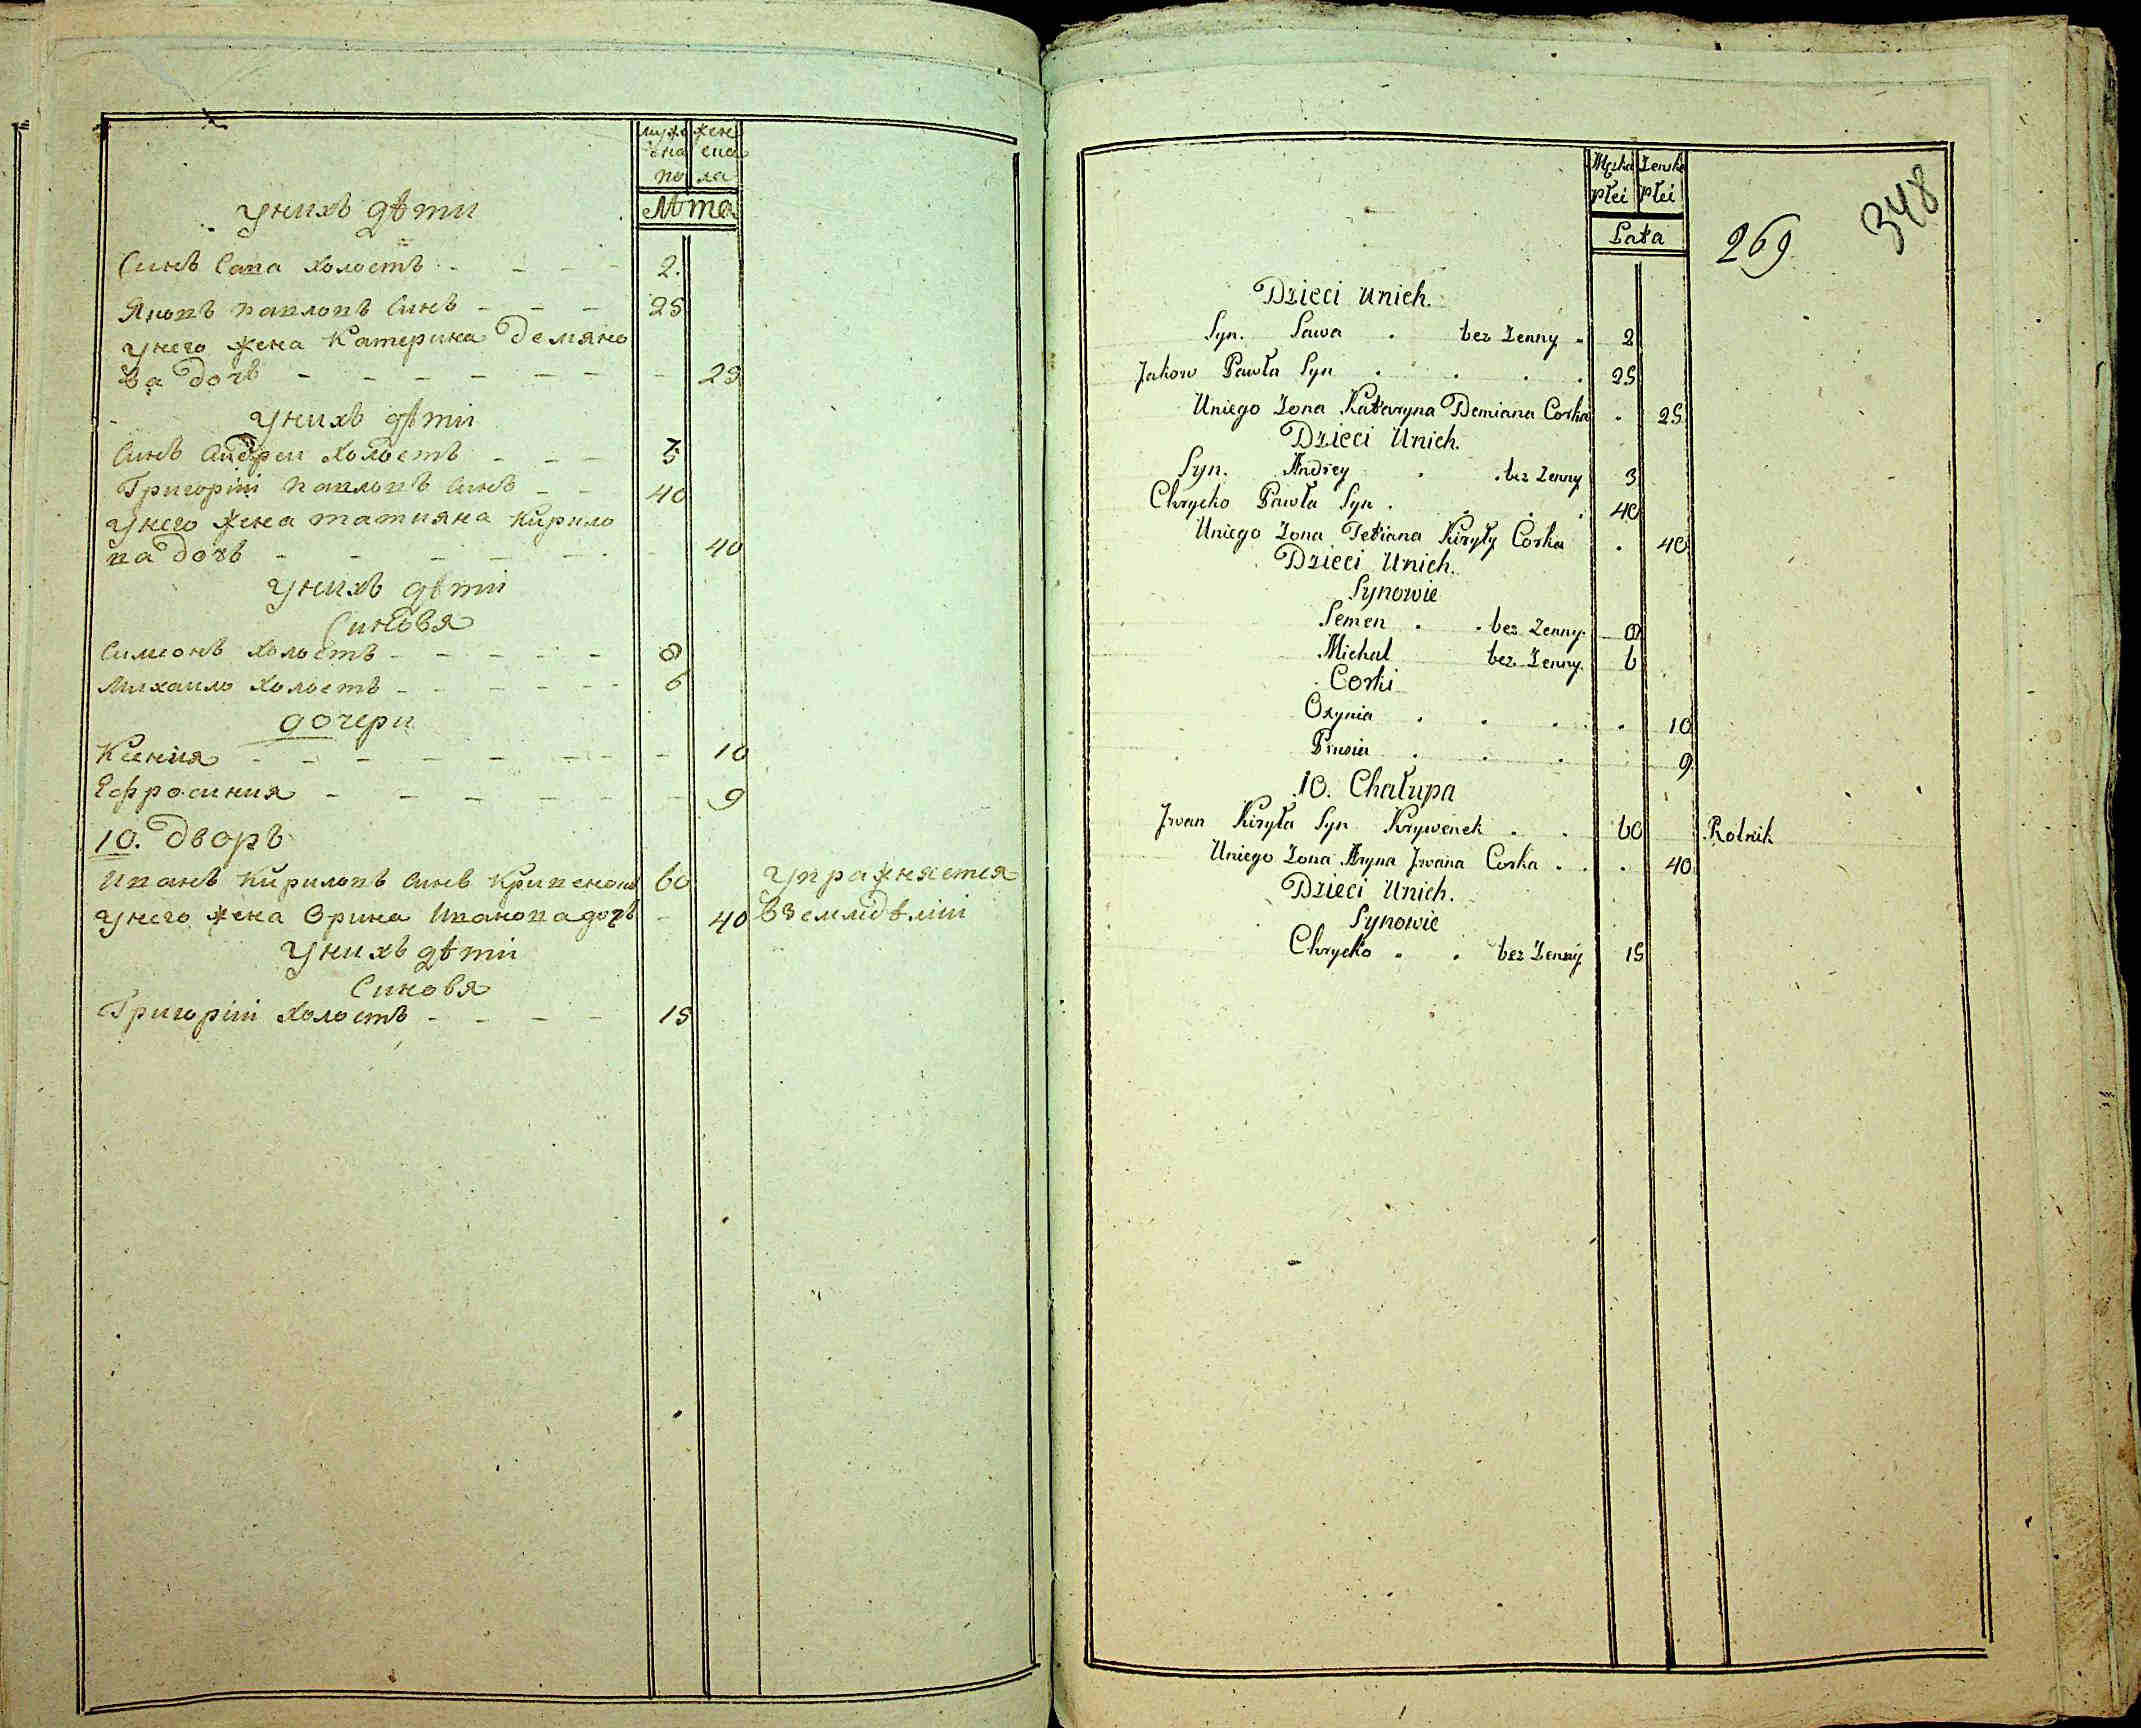 муже жен
ска ска
по ла
лѣта
У нихъ дѣти
Синъ Сава холостъ 2.
Яковъ Павловъ синъ 25
У него жена Катерина Демяно
ва дочъ 25
У нихъ дѣти
Синъ Андреи холостъ 3
Григорій Павловъ синъ 40
У него жена Татияна Кирило
ва дочъ 40
У нихъ дѣти
Синовя
Симеонъ холостъ 8
Михаило холостъ 6
дочери
Ксения 10
Ефросиния 9
10. Дворъ
Иванъ Кириловъ синъ Кривенокъ 60 упражняется
У него жена Орина Иванова дочъ 40 в землидѣліи
У нихъ дѣти
Синовя
Григорій холостъ 15
Męzka Zenska
Płci Płci
Lata
269
348
Dzieci Unich.
Syn. Sawa bez Zenny 2
Jakow Pawła Syn 25
Uniego Zona Kataryna Demiana Corka 25
Dzieci Unich.
Syn. Andrey bez Zenny 3
Chrycko Pawła Syn 40
Uniego Zona Tetiana Kiryły Corka 40
Dzieci Unich.
Synowie
Semen bez Zenny 8
Michal bez Zenny 6
Corki
Oxynia 10
Prusia 9
10. Chałupa
Jwan Kiryła Syn Krywenek 60 Rolnik
Uniego Zona Aryna Jwana Corka 40
Dzieci Unich.
Synowie
Chrycko bez Zenny 15